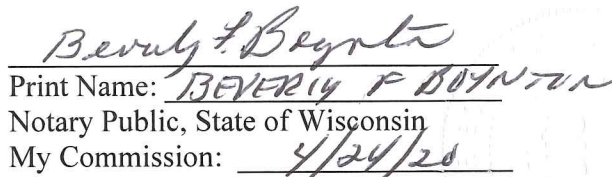 Beverly F. Boynton
Print Name: BEVERLY F BOYNTON
Notary Public, State of Wisconsin
My Commission: 4/24/20